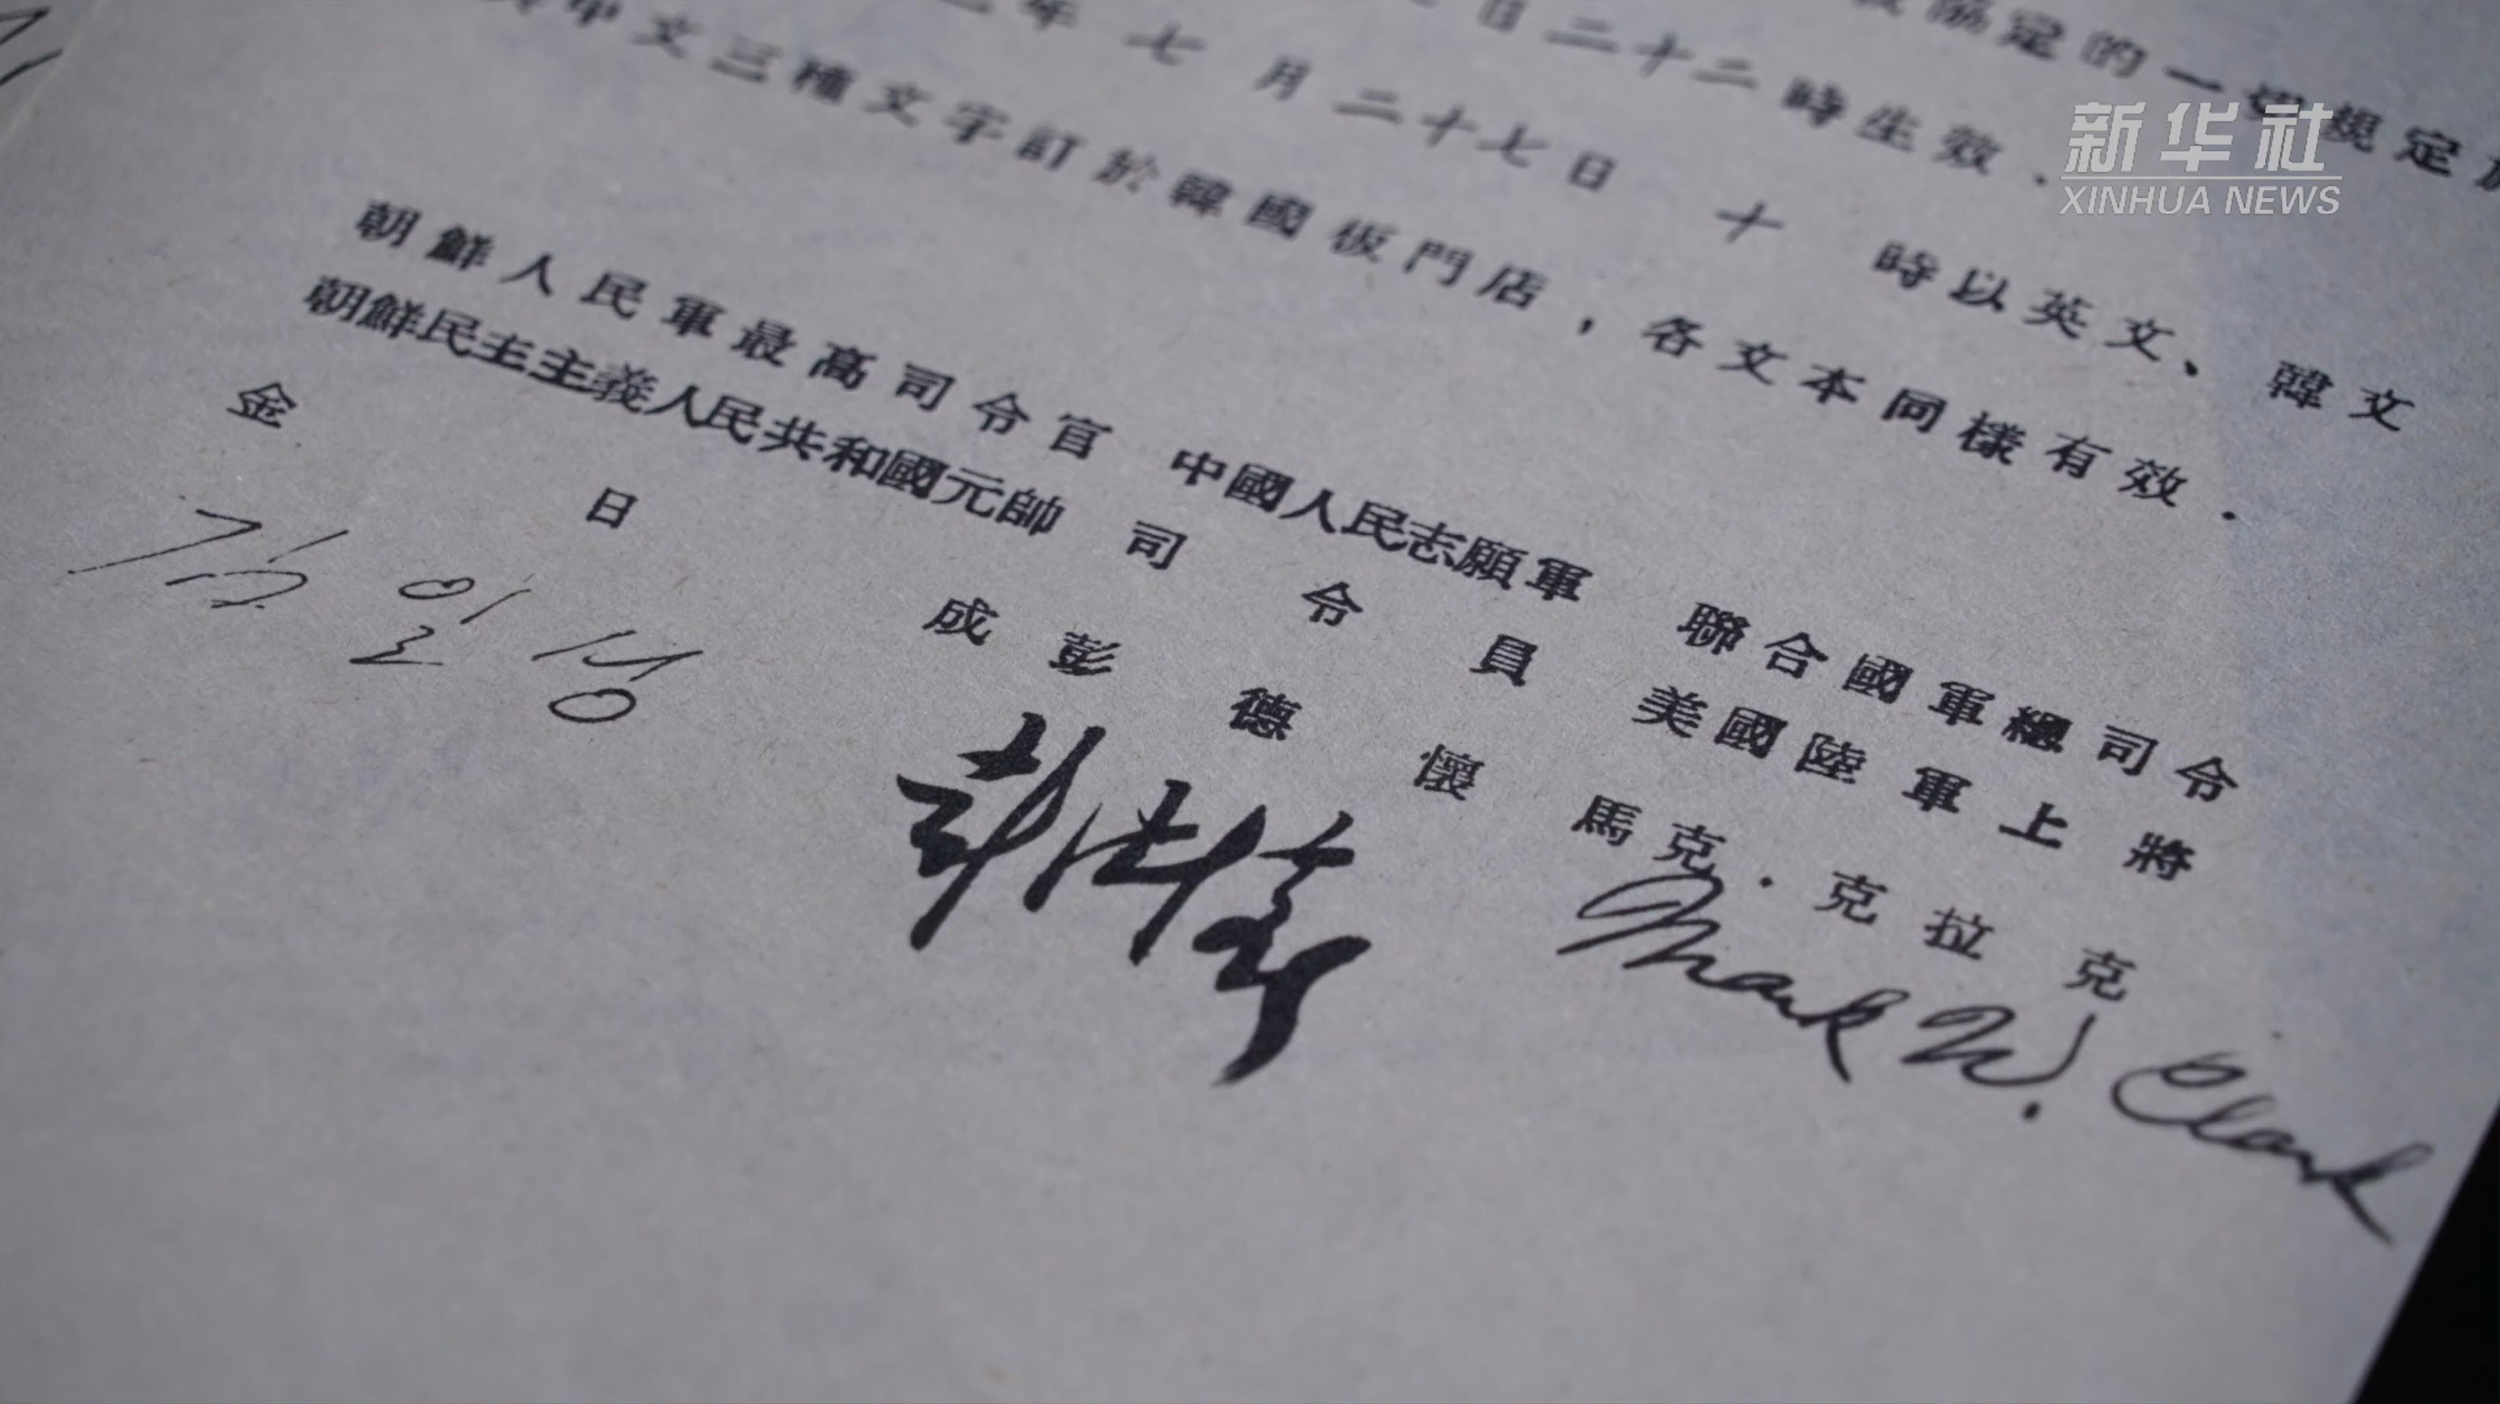 協定的一切規定
日二十二時生效．
年 七 月 二十七日 十 時以英文、韓文
中文三種文字訂於韓國板門店，各文本同樣有效．
朝鮮人民軍最高司令官 中國人民志願軍 聯合國軍總司令
朝鮮民主主義人民共和國元帥 司令員 美國陸軍上將
金日成 彭德懷 馬克．克拉克
김일성 彭德懷 Mark W. Clark
新华社
XINHUA NEWS